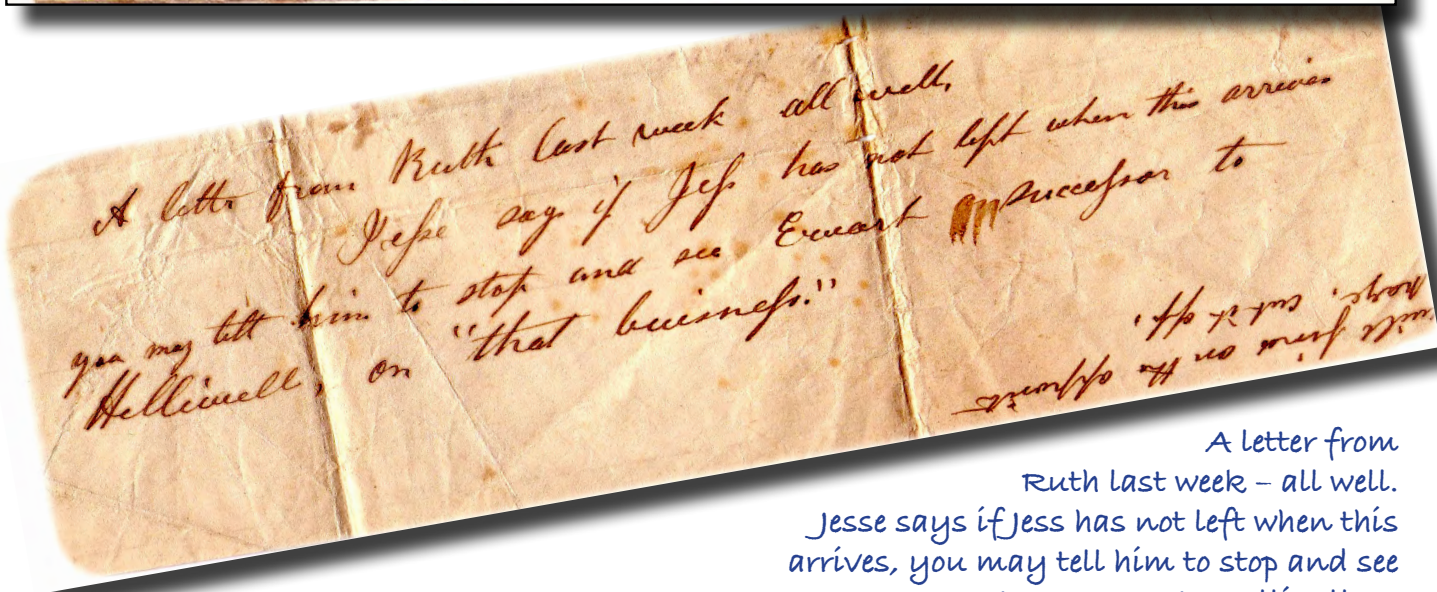 A letter from Ruth last week all well,
Jesse says if Jess has not left when this arrives
you may tell him to stop and see Ewart successor to
Helliwell, on "that buisness."
will find on the opposite
page, cut it off,
A letter from
Ruth last week – all well.
Jesse says if Jess has not left when this
arrives, you may tell him to stop and see